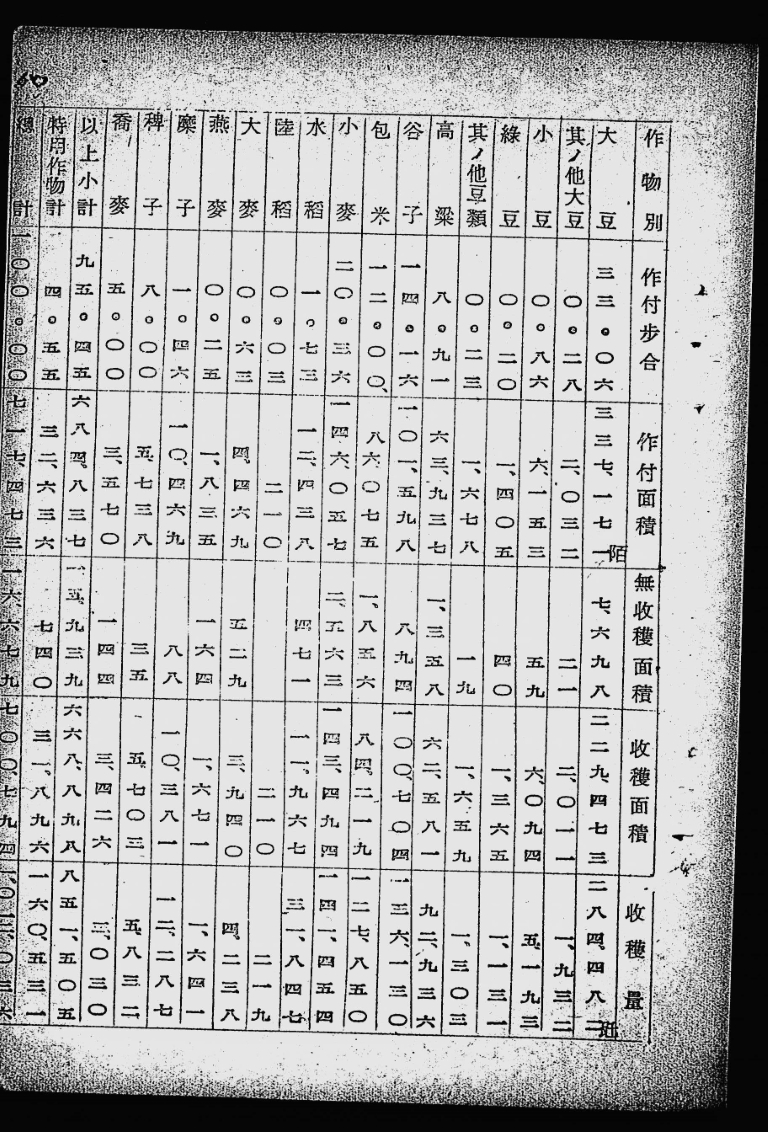 作物別 作付步合 作付面積 無收穫面積 收穫面積 收穫量
大豆 三三。〇六 三三七、一七一陌 七、六九八 二二九、四七三 二八四、四八二瓲
其ノ他大豆 〇。二八 二、〇三二 二一 二、〇一一 一、九三二
小豆 〇。八六 六、一五三 五九 六、〇九四 五、一九三
綠豆 〇。二〇 一、四〇五 四〇 一、三六五 一、一三一
其ノ他豆類 〇。二三 一、六七八 一九 一、六五九 一、三〇三
高粱 八。九一 六三、九三七 一、三五八 六二、五八一 九二、九三六
谷子 一四。一六 一〇一、五九八 八九四 一〇〇、七〇四 一三六、一三〇
包米 一二。〇〇 八六、〇七五 一、八五六 八四、二一九 一二七、八五〇
小麥 二〇。三六 一四六、〇五七 二、五六三 一四三、四九四 一四一、四五四
水稻 一。七三 一二、四三八 四七一 一一、九六七 三一、八四七
陸稻 〇。〇三 二一〇 二一〇 二一九
大麥 〇。六三 四、四六九 五二九 三、九四〇 四、二三八
燕麥 〇。二五 一、八三五 一六四 一、六七一 一、六四一
糜子 一。四六 一〇、四六九 八八 一〇、三八一 一二、二八七
稗子 八。〇〇 五、七三八 三五 五、七〇三 五、八三二
喬麥 五。〇〇 三、五七〇 一四四 三、四二六 三、〇三〇
以上小計 九五。四五 六八四、八三七 一五、九三九 六六八、八九八 八五一、五〇五
特用作物計 四。五五 三二、六三六 七四〇 三一、八九六 一六〇、五三一
總計 一〇〇。〇〇 七一七、四七三 一六、六七九 七〇〇、七九四 一、〇一二、〇三六